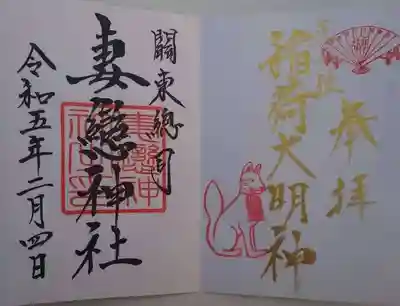 奉拝
稲荷大明神
關東總司
妻戀神社
令和五年二月四日